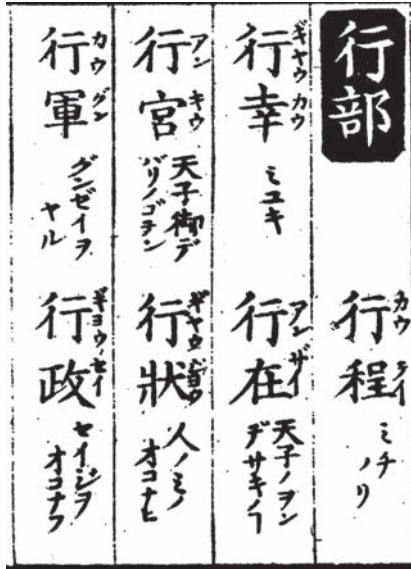 行部
行程 カウテイ ミチノリ
行幸 ギヤウカウ ミユキ
行在 アンザイ 天子ノヲンデサキノヿ
行宮 アンキウ 天子御デバリノゴテン
行狀 ギヤウジヨウ 人ノミノオコナヒ
行軍 カウグン グンゼイヲヤル
行政 ギヨウセイ セイジヲオコナフ